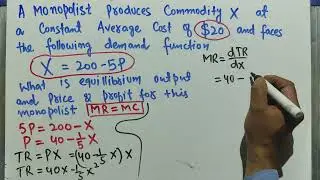 A Monopolist Produces Commodity X at
a Constant Average Cost of $20 and faces
the following demand function
X = 200-5P
What is equillibrium output
and Price & Profit for this
monopolist MR=MC
5P = 200-X
P = 40-1/5 X
TR = PX = (40-1/5 X) X
TR = 40X-1/5 X²
MR = dTR/dx
= 40 -